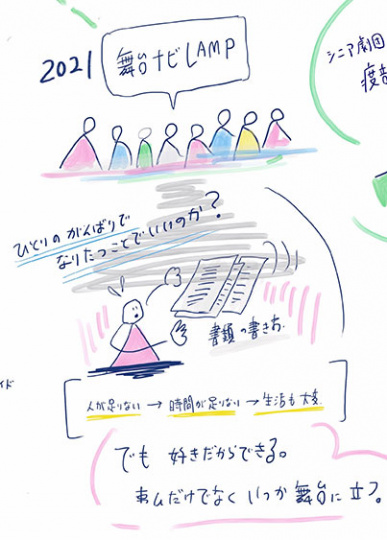 2021
舞台ナビLAMP
シニア劇団
ひとりのがんばりで
なりたつことでいいのか?
書類の書き方.
イド
人が足りない → 時間が足りない → 生活も大変
でも 好きだからできる。
だけでなく いつか 舞台に立つ。